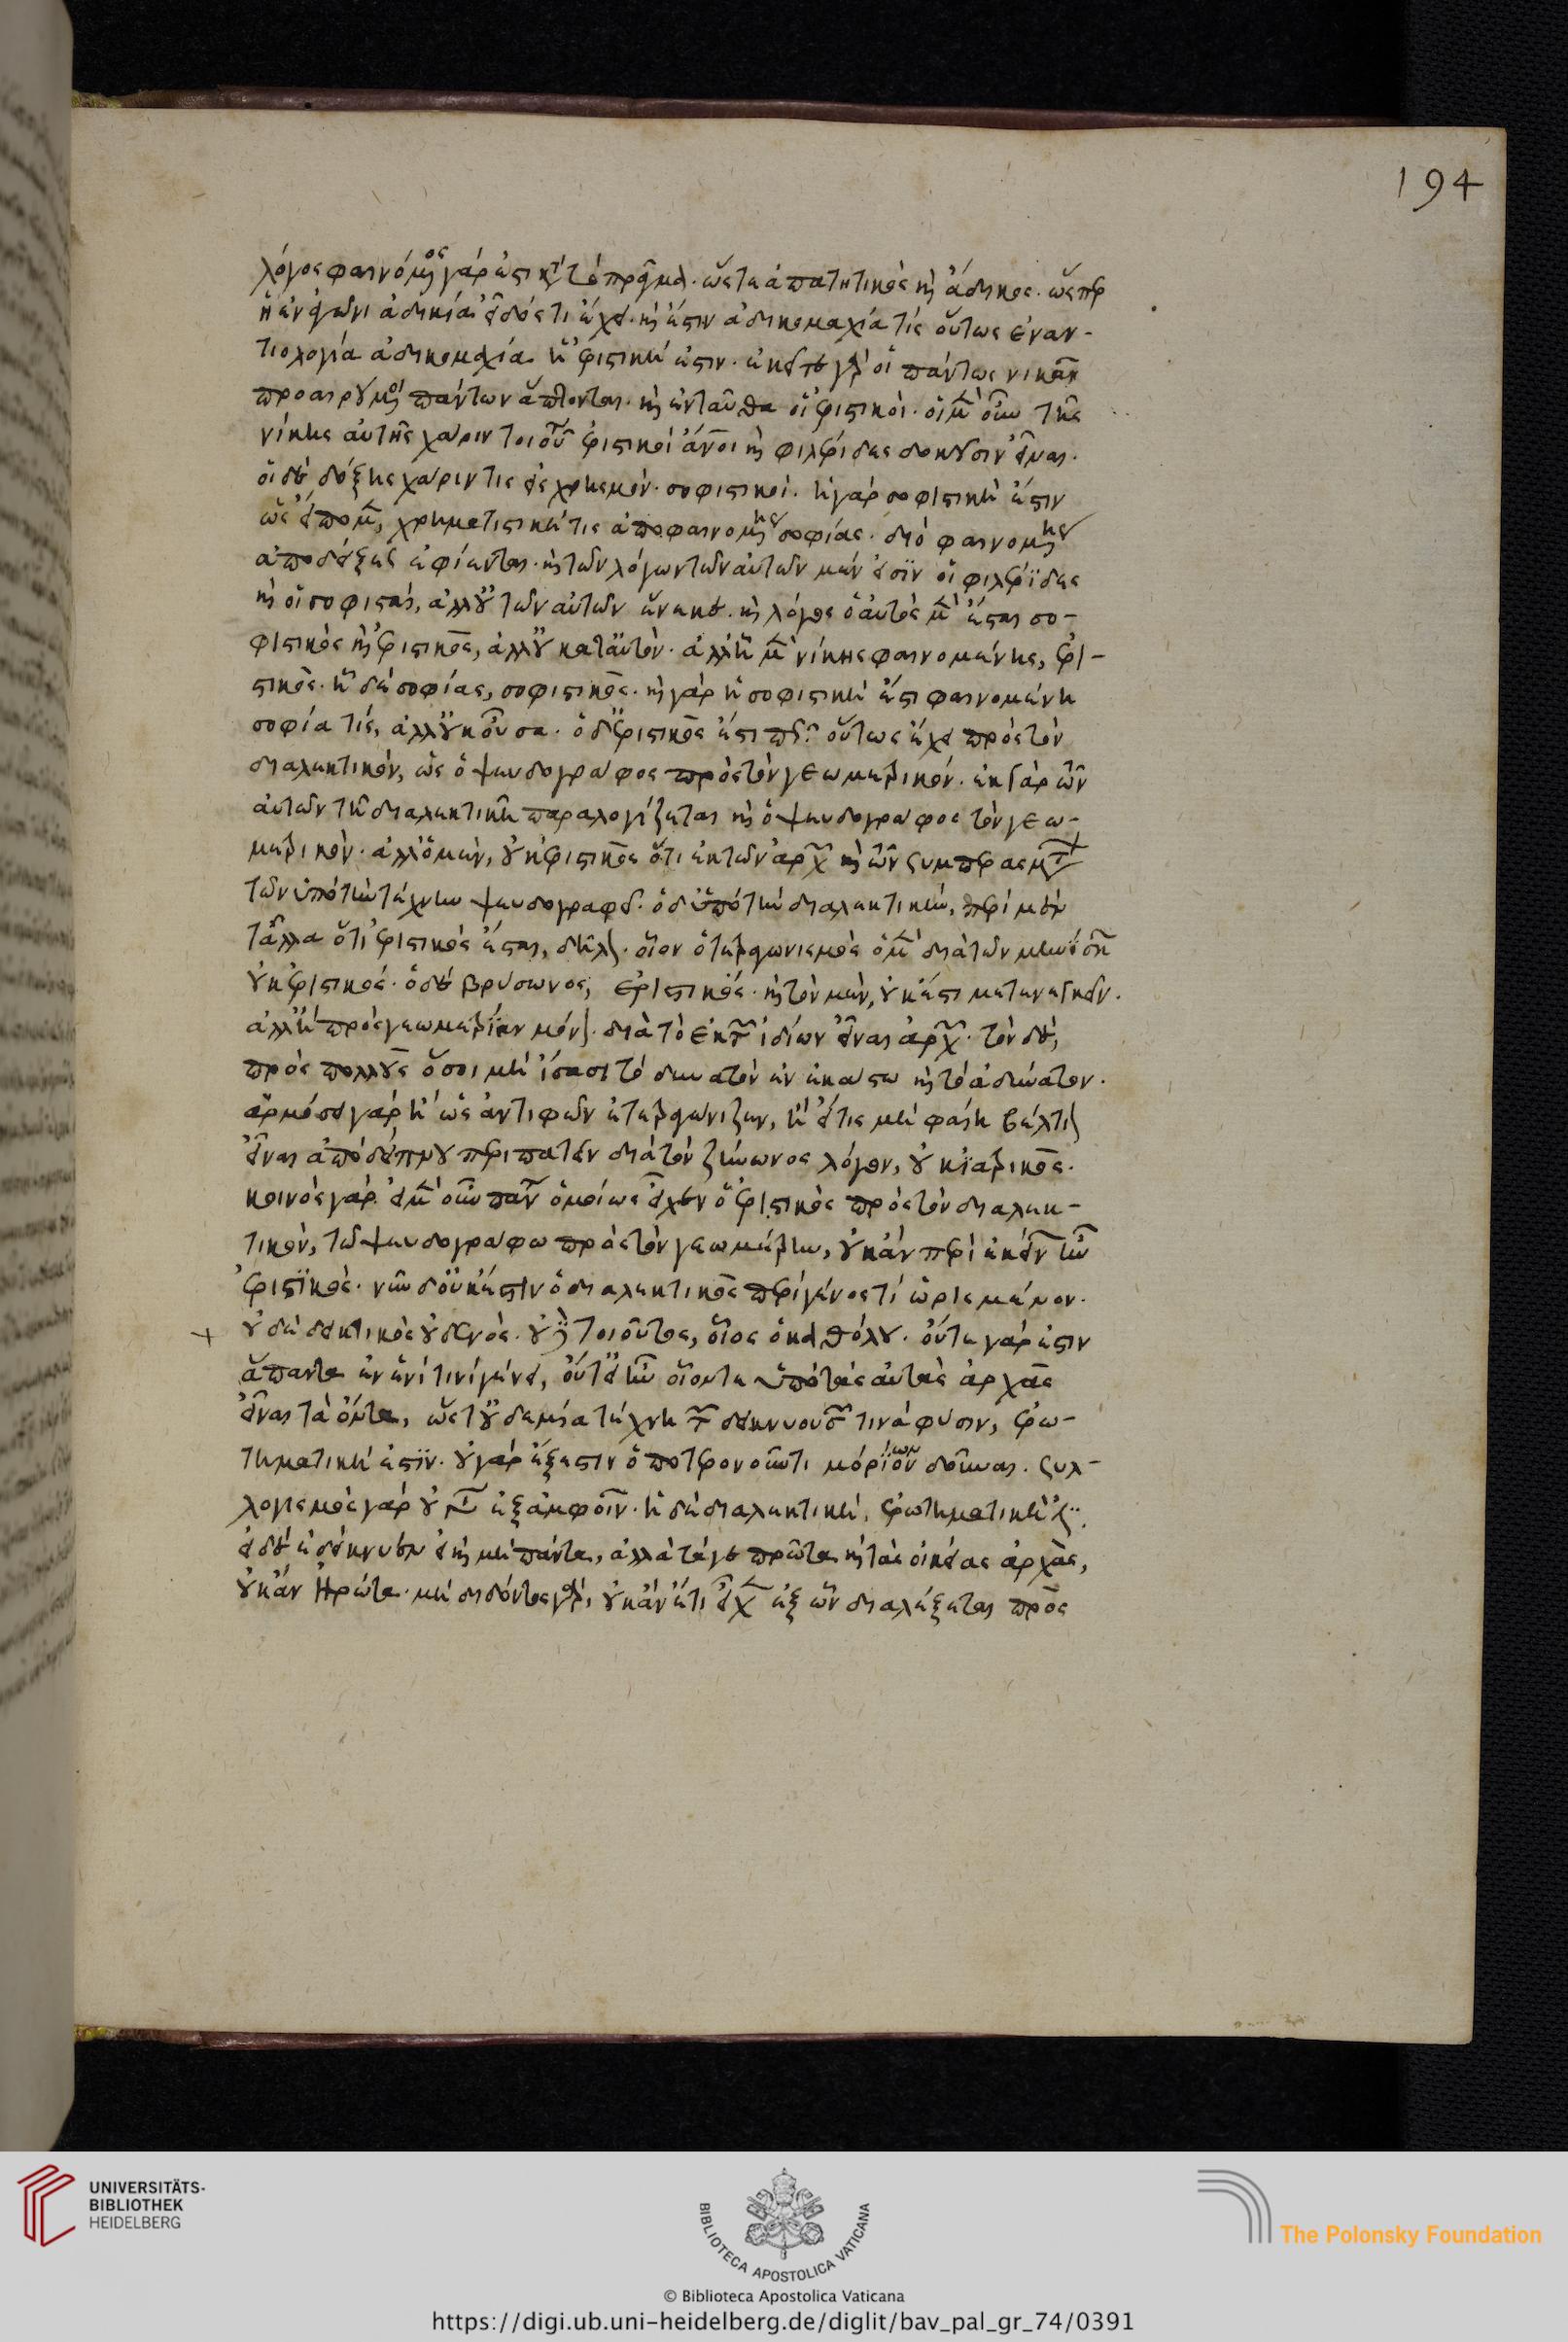 194
λόγος φαινόμενος γάρ ἐστι κατὰ τὸ πρᾶγμα· ὥστε ἀπατητικὸς καὶ ἄδικος· ὥσπερ
ἡ ἐν ἀγῶνι ἀδικία εἶδός τι ἔχει· καὶ ἔστιν ἀδικομαχία τίς οὕτως ἐναν-
τιολογία ἀδικομαχία ἡ ἐριστική ἐστιν· ἐκεῖ τε γὰρ οἱ πάντως νικᾶν
προαιρούμενοι πάντων ἅπτονται· καὶ ἐνταῦθα οἱ ἐριστικοί· οἱ μὲν οὖν τῆς
νίκης αὐτῆς χάριν τοιοῦτοι ἐριστικοὶ ἄνθρωποι καὶ φιλέριδες δοκοῦσιν εἶναι·
οἱ δὲ δόξης χάριν τῆς εἰς χρησμὸν· σοφιστικοί· ἡ γὰρ σοφιστική ἐστιν
ὡς εἴπομεν, χρηματιστική τις ἀπὸ φαινομένης σοφίας· διὸ φαινομένης
ἀποδείξεως ἐφίενται· καὶ τῶν λόγων τῶν αὐτῶν μέν εἰσιν οἱ φιλέριδες
καὶ οἱ σοφισταί, ἀλλ' οὐ τῶν αὐτῶν ἕνεκεν· καὶ λόγος ὁ αὐτὸς μὲν ἔσται σο-
φιστικὸς καὶ ἐριστικός, ἀλλ' οὐ κατ' αὐτόν· ἀλλ' ἧ μὲν νίκης φαινομένης, ἐρι-
στικός· ἧ δὲ σοφίας, σοφιστικός· καὶ γὰρ ἡ σοφιστική ἐστι φαινομένη
σοφία τίς, ἀλλ' οὐκ οὖσα· ὁ δ' ἐριστικός ἐστί πως οὕτως ἔχει πρὸς τὸν
διαλεκτικόν, ὡς ὁ ψευδογράφος πρὸς τὸν γεωμετρικόν· ἐκ γὰρ τῶν
αὐτῶν τῇ διαλεκτικῇ παραλογίζεται καὶ ὁ ψευδογράφος τὸν γεω-
μετρικόν· ἀλλ' ὁ μέν, οὐκ ἐριστικός ὅτι ἐκ τῶν ἀρχῶν καὶ τῶν συμπερασμάτων
τῶν ὑπὸ τὴν τέχνην ψευδογραφεῖ· ὁ δ' ὑπὸ τὴν διαλεκτικήν, περὶ μὲν
τἆλλα ὅτι ἐριστικὸς ἔσται, δῆλον· οἷον ὁ τετραγωνισμὸς ὁ μὲν διὰ τῶν μηνίσκων
οὐκ ἐριστικός· ὁ δὲ βρύσωνος, ἐριστικός· καὶ τὸν μὲν, οὐκ ἔστι μετενεγκεῖν·
ἀλλ' ἢ πρὸς γεωμετρίαν μόνον· διὰ τὸ ἐκ τῶν ἰδίων εἶναι ἀρχῶν· τὸν δὲ,
πρὸς πολλούς ὅσοι μὴ ἴσασι τὸ δυνατὸν ἐν ἑκάστω καὶ τὸ ἀδύνατον·
ἁρμόσει γάρ· ἢ ὡς ἀντιφῶν ἐτετραγώνιζεν, ἢ εἴ τις μὴ φαίη βέλτιον
εἶναι ἀπὸ δείπνου περιπατεῖν διὰ τὸν ζήνωνος λόγον, οὐκ ἰατρικός·
κοινὸς γάρ· εἰ μὲν οὖν πάντη ὁμοίως εἶχεν ὁ ἐριστικὸς πρὸς τὸν διαλεκ-
τικόν, τῶ ψευδογράφω πρὸς τὸν γεωμέτρην, οὐκ ἂν περὶ ἐκείνων ἦν
ἐριστικός· νῦν δ' οὐκ ἔστιν ὁ διαλεκτικὸς περὶ γένος τί ὡρισμένον·
οὐδὲ δεικτικὸς οὐδενός· οὐδὲ τοιοῦτος, οἷος ὁ καθόλου· οὔτε γάρ ἐστιν
ἅπαντα ἐν ἑνί τινι γένει, οὔτ' εἰ ἦν οἷόν τε ὑπὸ τὰς αὐτὰς ἀρχὰς
εἶναι τὰ ὄντα, ὥστ' οὐδεμία τέχνη τῶν δεικνυουσῶν τινὰ φύσιν, ἐρω-
τηματική ἐστιν· οὐ γὰρ ἔξεστιν ὁποτερονοῦν τι μόριον δοῦναι· συλ-
λογισμὸς γὰρ οὐ γίνεται ἐξ ἀμφοῖν· ἡ δὲ διαλεκτική, ἐρωτηματική ἐστιν·
εἰ δὲ ἐδείκνυεν εἰ καὶ μὴ πάντα, ἀλλὰ τά γε πρῶτα καὶ τὰς οἰκείας ἀρχὰς,
οὐκ ἂν ἠρώτα· μὴ διδόντος γὰρ, οὐκ ἂν ἔτι εἶχεν ἐξ ὧν διαλέξεται πρὸς
UNIVERSITÄTS-
BIBLIOTHEK
HEIDELBERG
BIBLIOTECA APOSTOLICA VATICANA
The Polonsky Foundation
© Biblioteca Apostolica Vaticana
https://digi.ub.uni-heidelberg.de/diglit/bav_pal_gr_74/0391